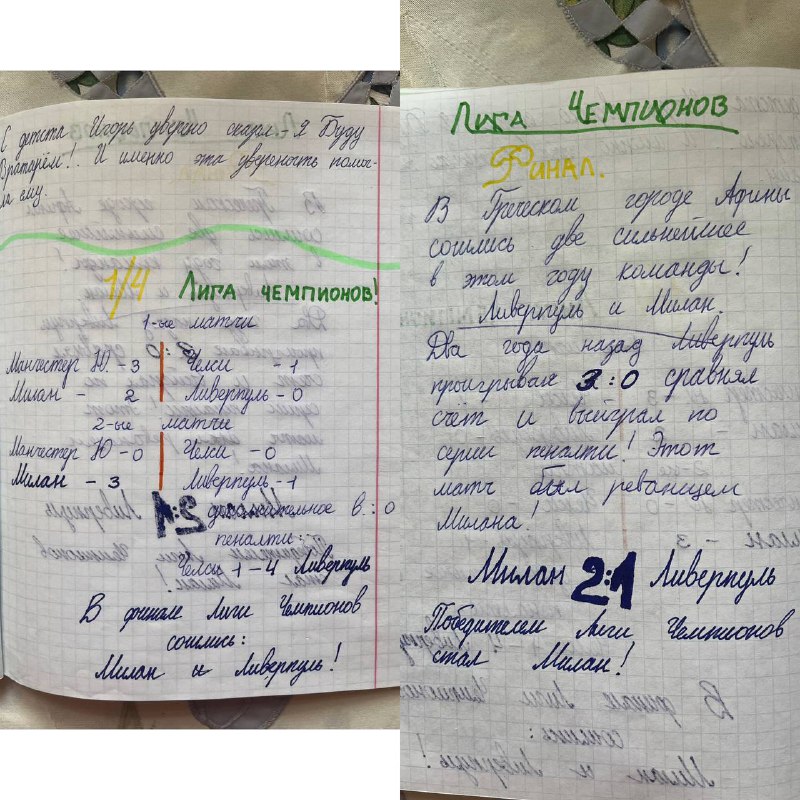 С детста Игорь уверено скарл - Я Буду
Вратарём!. И именно эта увереность помы-
ла ему.
1/4 Лига чемпионов!
1-ые матчи
Манчестер Ю - 3 Челси - 1
Милан - 2 Ливерпуль - 0
2-ые матчи
Манчестер Ю - 0 Челси - 0
Милан - 3 Ливерпуль - 1
дополнительное В : 0
пеналти:
Челси 1 - 4 Ливерпуль
В финале лиги Чемпионов
сошлись:
Милан и Ливерпуль!
Лига Чемпионов
Финал.
В Греческом городе Афины
сошлись две сильнейшее
в этом году команды!
Ливерпуль и Милан.
Два года назад Ливерпуль
проигрывая 3:0 сравнял
счёт и выйграл по
серии пеналти! Этот
матч был реваншем
Милана!
Милан 2:1 Ливерпуль
Победителем Лиги Чемпионов
стал Милан!